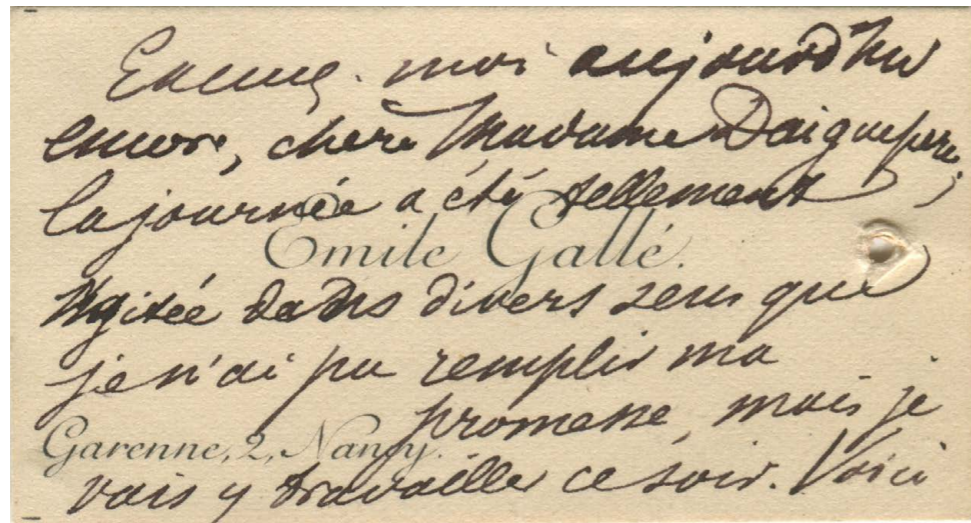 Excusez-moi aujourd'hui
encore, chère Madame Daigueperse,
la journée a été tellement
Emile Gallé.
agitée dans divers sens que
je n'ai pu remplir ma
promesse, mais je
Garenne, 2, Nancy.
vais y travailler ce soir. Voici